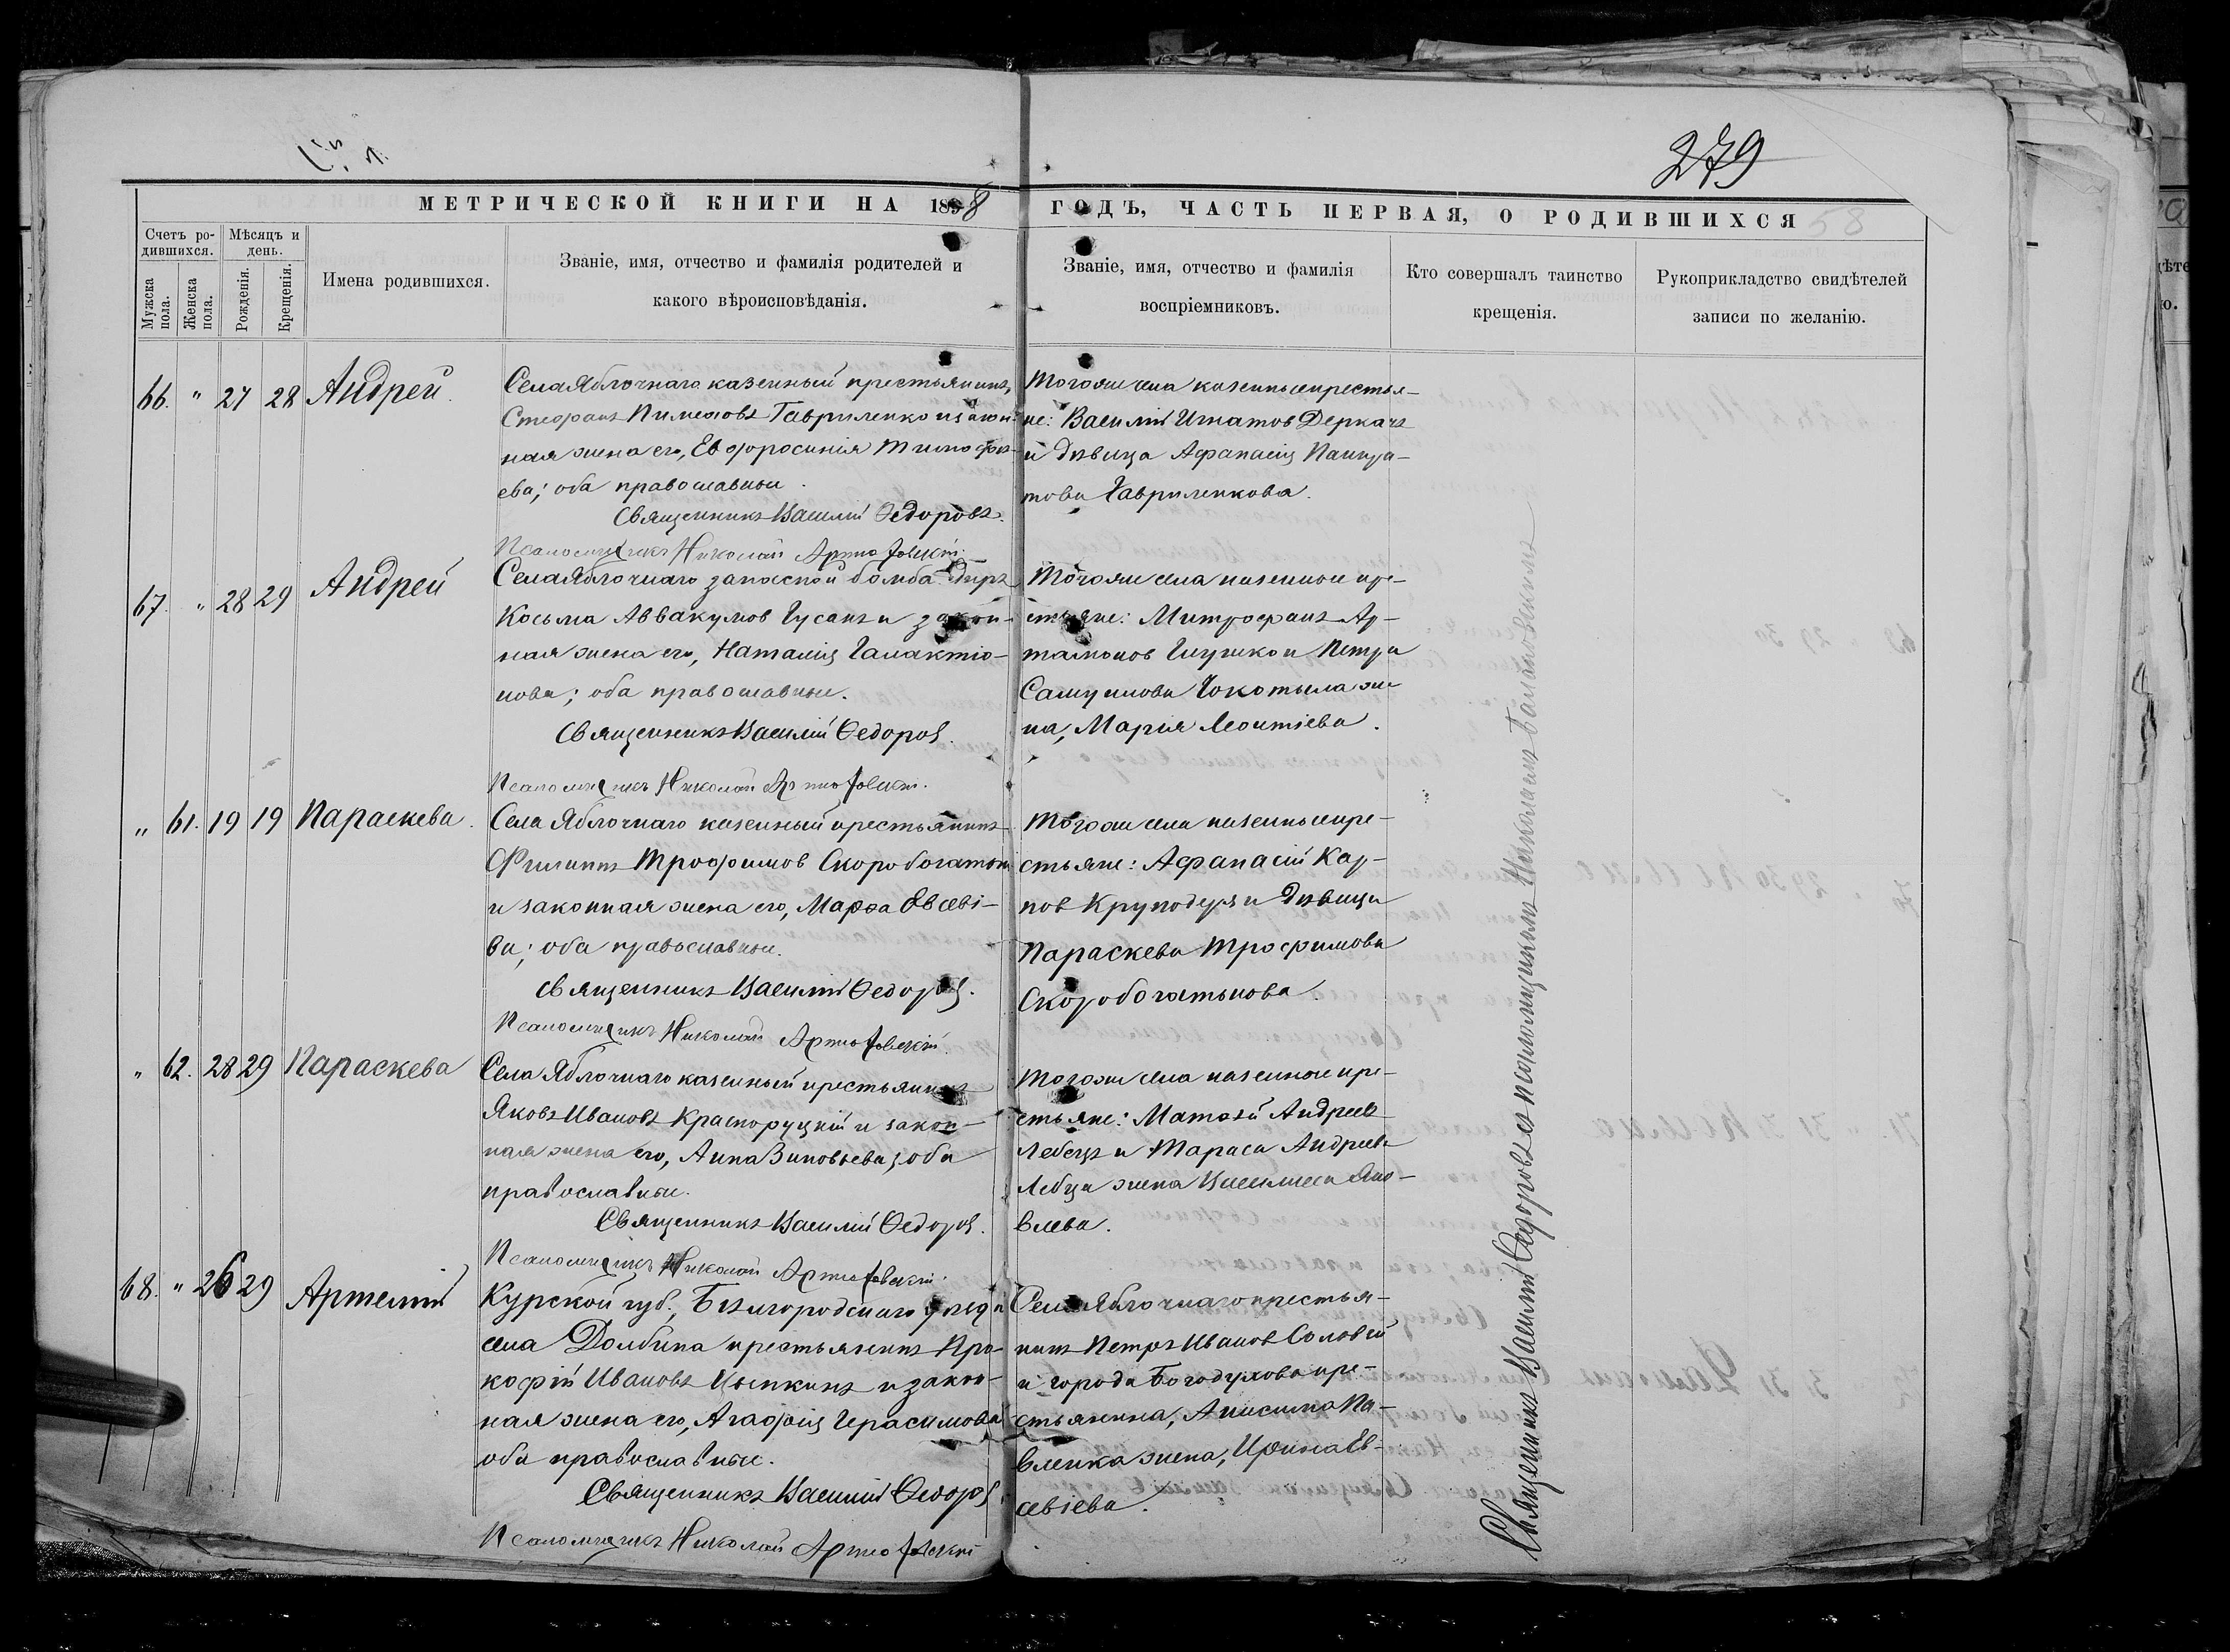 279
МЕТРИЧЕСКОЙ КНИГИ НА 1898 ГОДЪ, ЧАСТЬ ПЕРВАЯ, О РОДИВШИХСЯ
58
Счетъ ро-
дившихся.
Мужска
пола.
Женска
пола.
Мѣсяцъ и
день.
Рожденія.
Крещенія.
Имена родившихся.
Званіе, имя, отчество и фамилія родителей и
какого вѣроисповѣданія.
Званіе, имя, отчество и фамилія
воспріемниковъ.
Кто совершалъ таинство
крещенія.
Рукоприкладство свидѣтелей
записи по желанію.
66. " 27 28 Андрей.
Села Яблочнаго казенный крестьянинъ,
Стефанъ Пименовъ Гавриленко и закон-
ная жена его, Евфросинія Тимофе-
ева; оба православные.
Священникъ Василій Ѳедоровъ.
Псаломщикъ Николай
Тогоже села казенные крестья-
не: Василій Игнатов Деркачъ
и дѣвица Афанасія Панкра-
това Гавриленкова.
67. " 28 29 Андрей
Села Яблочнаго запасной бомбардиръ
Косьма Аввакумов Гусакъ и закон-
ная жена его, Наталія Галактіо-
нова; оба православные.
Священникъ Василій Ѳедоров.
Псаломщикъ Николай
Тогоже села казенные кре-
стьяне: Митрофанъ Ар-
тамонов Глушко и Петра
Самуилова Чокотыла же-
на, Марія Леонтіева.
" 61. 19 19 Параскева.
Села Яблочнаго казенный крестьянинъ
Филиппъ Трофимов Скоробогатько
и законная жена его, Марѳа Евсеві-
ва; оба православные.
Священникъ Василій Ѳедоров.
Псаломщикъ Николай
Тогоже села казенные кре-
стьяне: Афанасій Кар-
пов Круподеря и дѣвица
Параскева Трофимова
Скоробогатькова.
" 62. 28 29 Параскева
Села Яблочнаго казенный крестьянинъ
Яковъ Ивановъ Красноруцкій и закон-
ная жена его, Анна Зиновьева; оба
православные.
Священникъ Василій Ѳедоров.
Псаломщикъ Николай
Тогоже села казенные кре-
стьяне: Матѳей Андреев
Лебецъ и Тараса Андреева
Лебца жена Василиса Яко-
влева.
68. " 26 29 Артемій
Курской губ., Бѣлгородскаго уѣзда
села Долбина крестьянинъ Про-
кофій Ивановъ Цыпкинъ и закон-
ная жена его, Агафія Герасимова
оба православные.
Священникъ Василій Ѳедоров.
Псаломщикъ Николай
Села Яблочнаго крестья-
нинъ Петръ Иванов Соловей
и города Богодухова кре-
стьянина, Анисима Па-
вленка жена, Ирина Ев-
севіева.
Священникъ Василій Ѳедоровъ съ псаломщикомъ Николаемъ